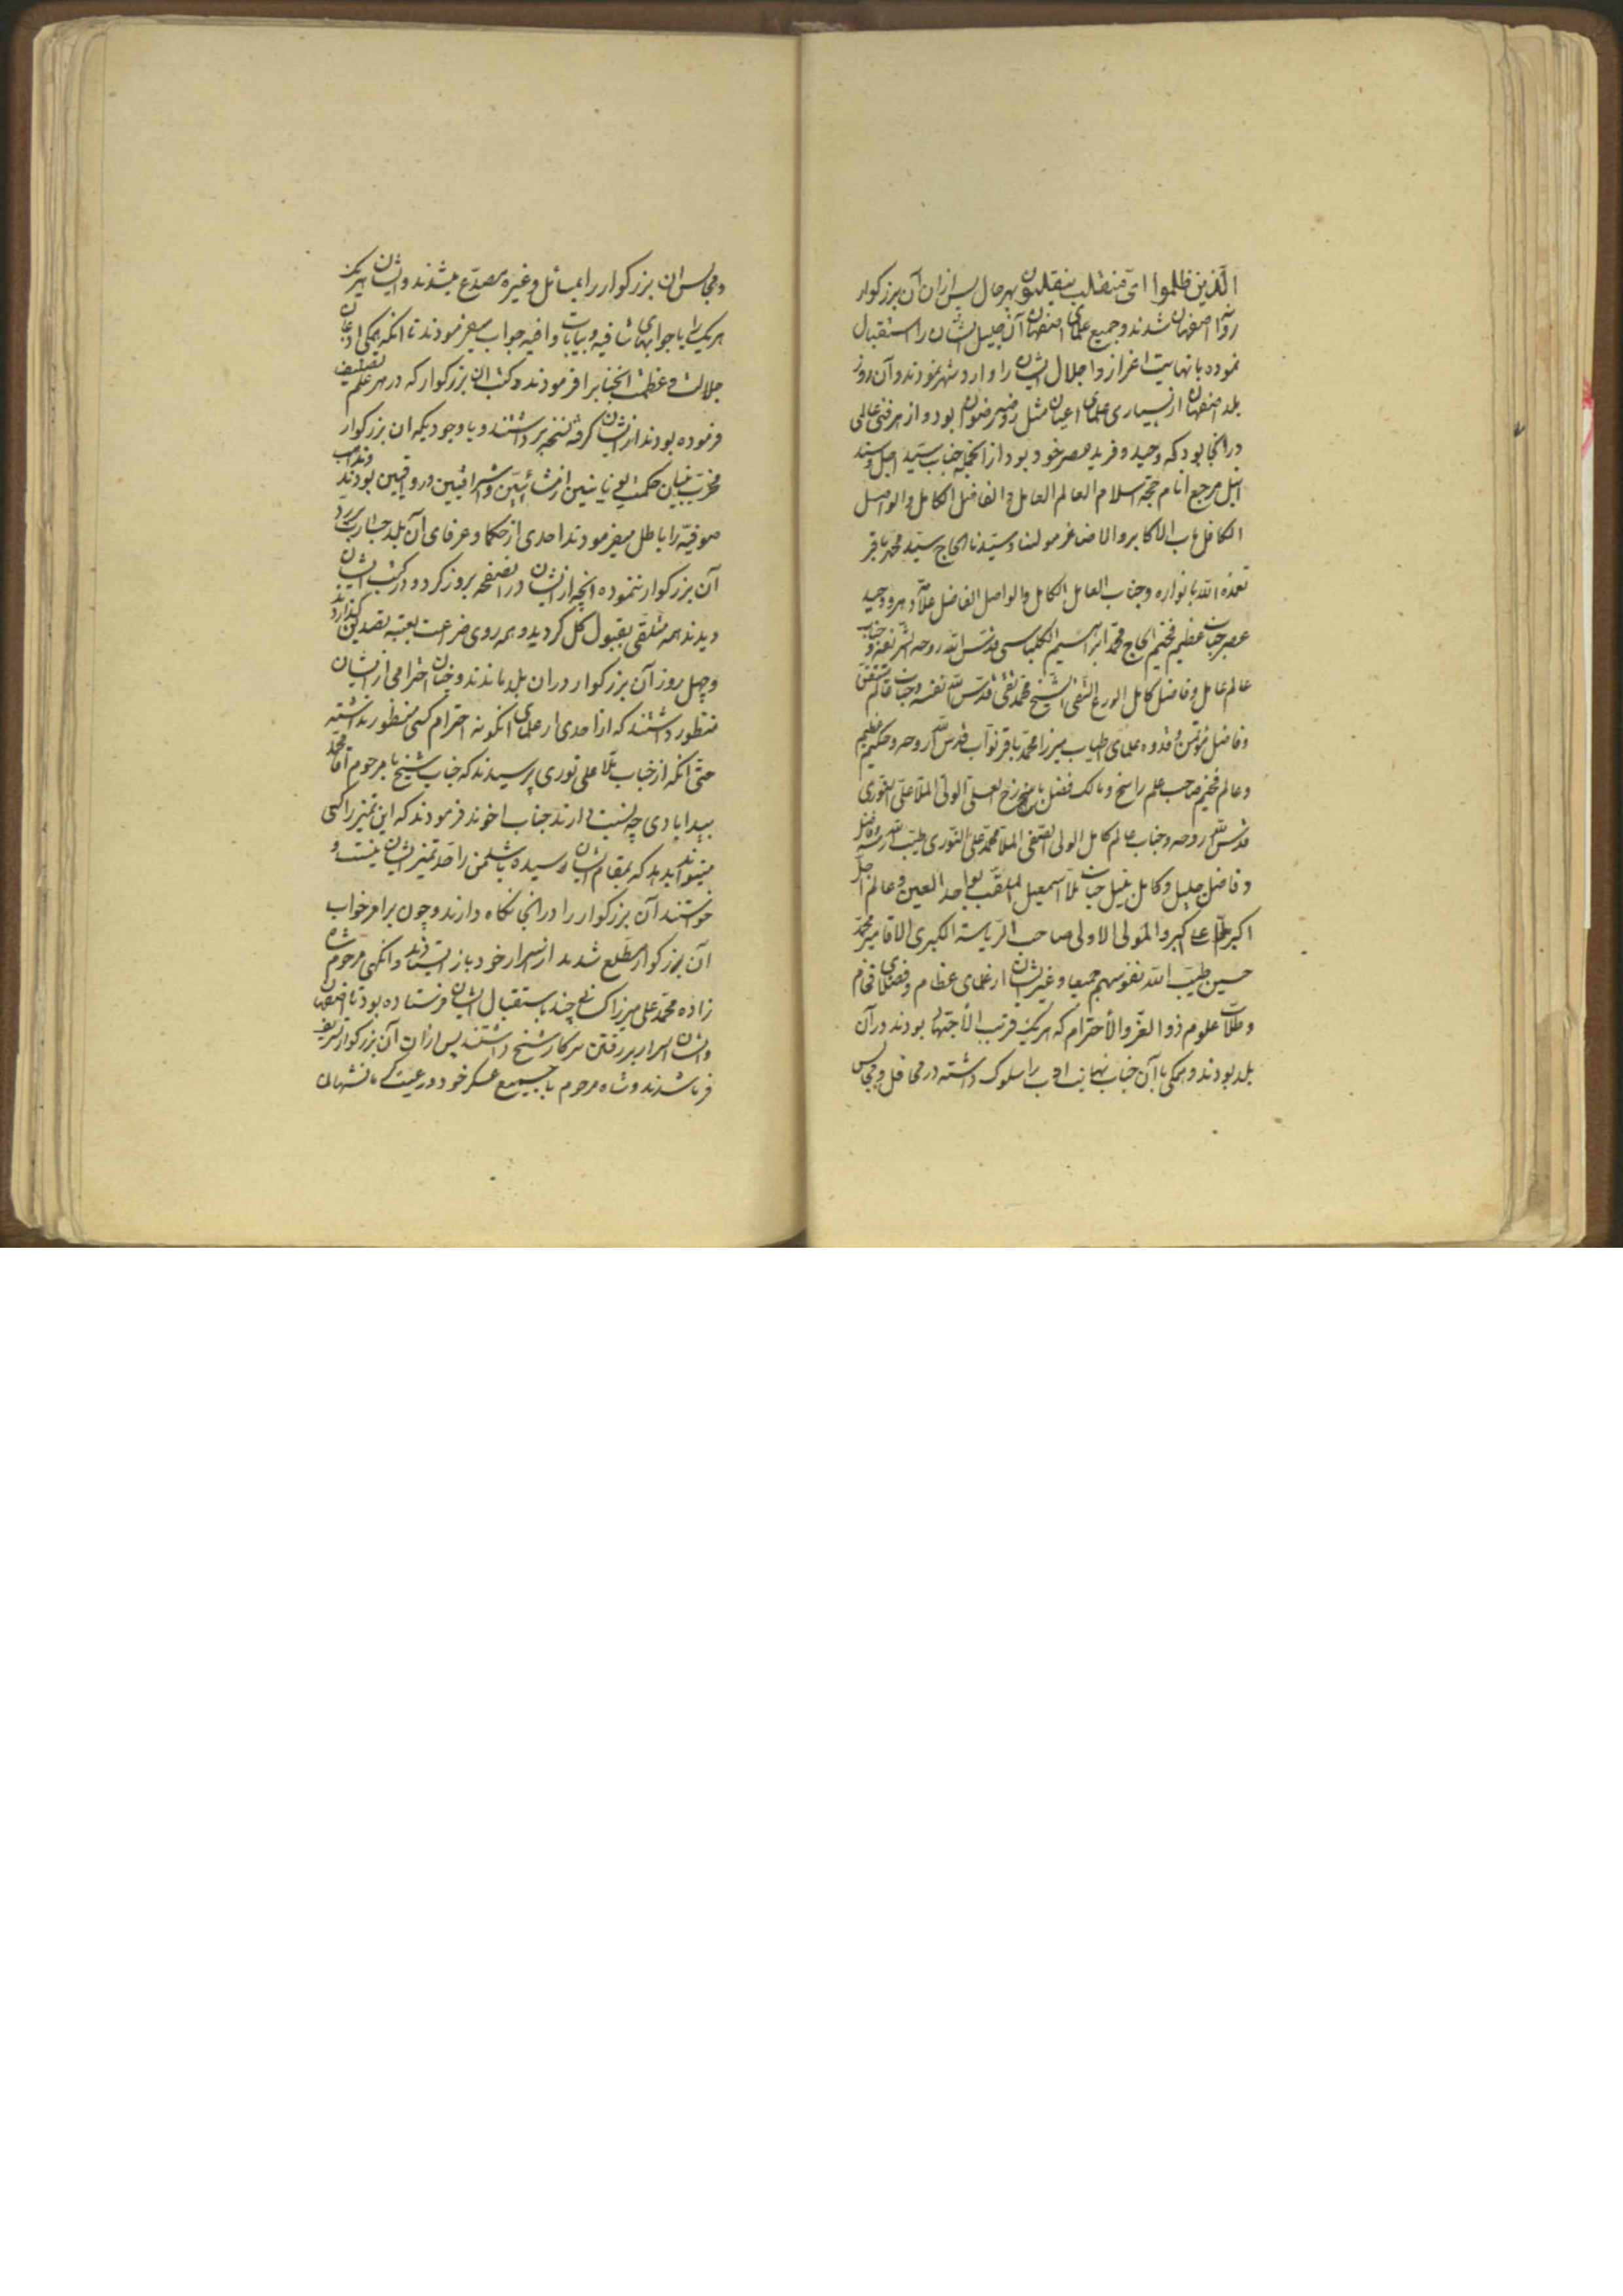 الّذین ظلموا ایّ منقلب ینقلبون بهر حال پس ازان آن بزرکوار
روانه اصفهان شدند و جمیع علمای اصفهان آن جلیل الشان را استقبال
نموده با نهایت اعزاز و اجلال ایشان را وارد شهر نمودند و آن روز
بلد اصفهان از بسیاری علمای اعیان مثل روضه رضوان بود و از هر فنی عالمی
در انجا بود که وحید و فرید عصر خود بود از انجمله جناب سیّد اجل و سند
انبل مرجع انام حجة الاسلام العالم العامل و الفاضل الکامل و الواصل
الکافل باب الاکابر و الاصاغر مولینا و سیّدنا الحاج سیّد محمّد باقر
تغمده الله بانواره و جناب العامل الکامل و الواصل الفاضل علاّمه دهر و وحید
عصر جناب عظیم فخیم الحاج محمّد ابراهیم الکلباسی قدّس الله روحه الشریفه و جناب
عالم عامل و فاضل کامل الورع التقی الشیخ محمّد تقی قدّس الله نفسه و جناب عالم متّقن
و فاضل مؤتمن و قدوه علمای اطیاب میرزا محمّد باقر نوّاب قدّس الله روحه و حکیم عظیم
و عالم فخیم صاحب علم راسخ و مالک فضل باذخ العلی الولی الملاّ علیّ النّوری
قدّس الله روحه و جناب عالم کامل الولی الصّفی الملاّ محمّد علی النّوری طیّب الله رمسه
و فاضل جلیل و کامل نبیل جناب ملاّ اسمعیل الملقّب بواحد العین و عالم اجلّ
اکبر ملاّ علی اکبر و المولی الاولی صاحب الرّیاسة الکبری الاقا میر محمّد
حسین طیّب الله نفوسهم جمیعا و غیر ایشان از علمای عظام و فضلای فخام
و طلاّب علوم ذو العزّ و الأحترام که هریک قریب الأجتهاد بودند در آن
بلد بودند و همکی با آن جناب نهایت ادب را سلوک داشته در محافل و مجالس
و مجالس ان بزرکوار را بمسائل و غیره مصدّع میشدند و ایشان هریک
هریک را با جوابهای شافیه و بیانات وافیه جواب میفرمودند تا انکه همکی اذعان
جلالت و عظمت انجناب را فرمودند و کتب ان بزرکوار که در هر علم تصنیف
فرموده بودند از ایشان کرفته نسخه برداشتند و با وجودیکه ان بزرکوار
مخرّب بنیان حکمت یونانیین از مشائیین و اشراقیین و رواقیین بودند و مذاهب
صوفیّه را باطل میفرمودند احدی از حکما و عرفای آن بلد جسارت بر ردّ
آن بزرکوار ننموده انچه از ایشان در انصفحه بروز کرد و در کتب ایشان
دیدند همه متلقّی بقبول کل کردید و همه روی ضراعت بعتبه تصدیق کذاردند
و چهل روز آن بزرکوار در ان بلد ماندند و چنان احترامی از ایشان
منظور داشتند که از احدی از علمای انکونه احترام کسی منظور نداشته
حتّی آنکه از جناب ملاّ علی نوری پرسیدند که جناب شیخ با مرحوم آقا محمّد
بیدابادی چه نسبت دارند جناب اخوند فرمودند که این تمیز را کسی
میتواند بدهد که بمقام ایشان رسیده باشد من را حدّ تمیز ایشان نیست و
خواستند آن بزرکوار را در انجا نکاه دارند و چون بر امر خواب
آن بزرکوار مطّلع شدند از اسرار خود باز ایستادند و انکهی مرحوم شاه
زاده محمّد علی میرزا کسانی چند باستقبال ایشان فرستاده بود تا اصفهان
و ایشان اسرار بر رفتن سرکار شیخ داشتند پس ازان آن بزرکوار تشریف
فرما شدند و شاه مرحوم با جمیع عسکر خود و رعیت کرمانشهان